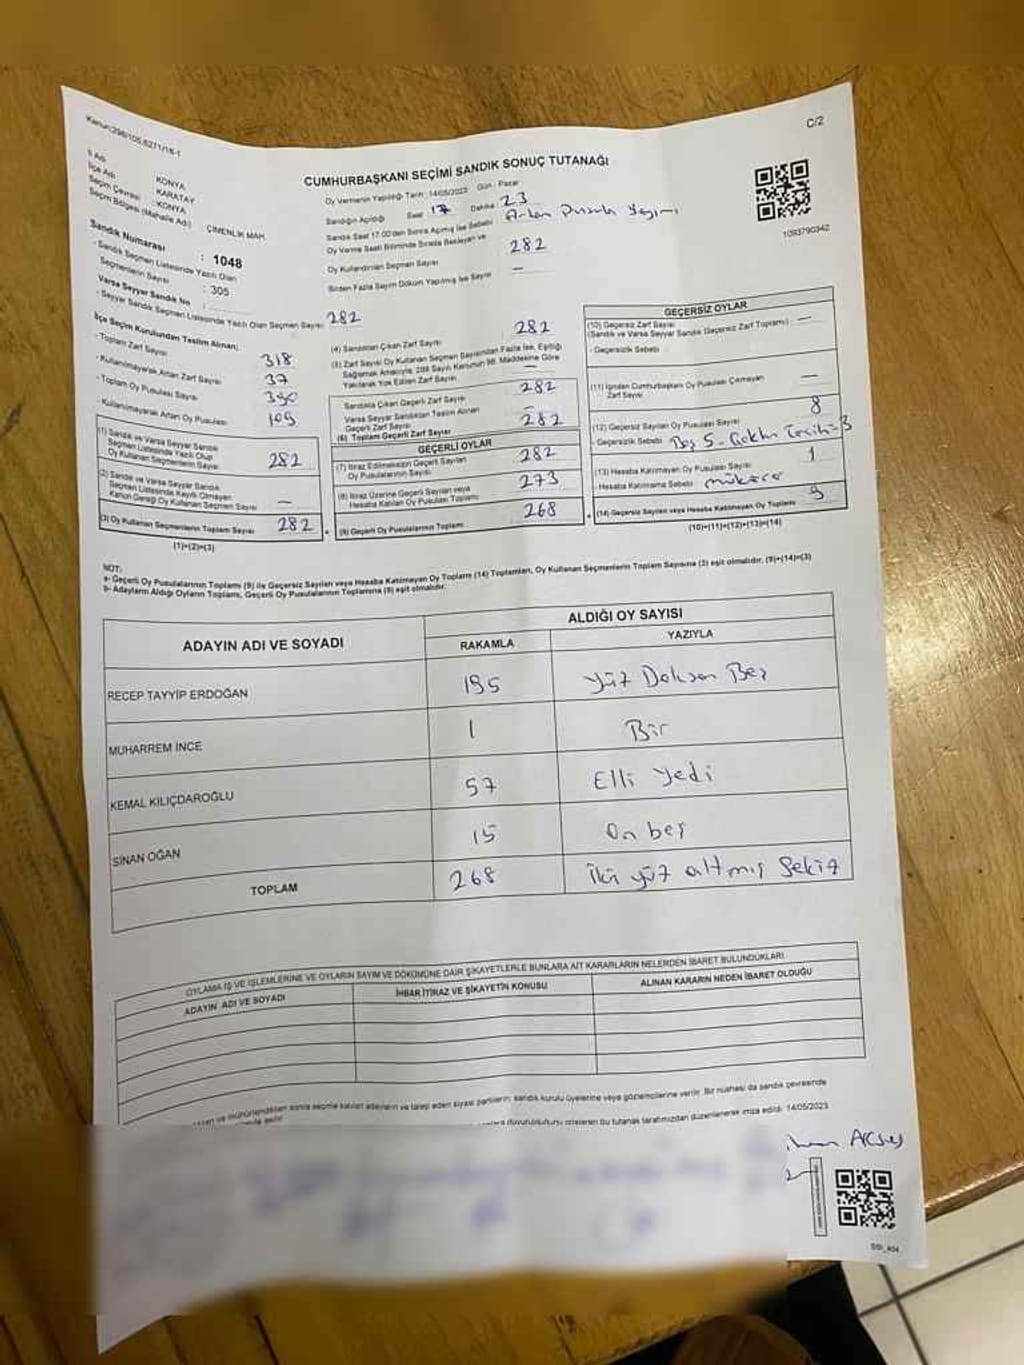 Kanun:298/105,6271/16-1
C/2
CUMHURBAŞKANI SEÇİMİ SANDIK SONUÇ TUTANAĞI
İl Adı : KONYA
İlçe Adı : KARATAY
Seçim Çevresi : KONYA
Seçim Bölgesi (Mahalle Adı) : ÇİMENLİK MAH.
Sandık Numarası : 1048
- Sandık Seçmen Listesinde Yazılı Olan
Seçmenlerin Sayısı : 305
Varsa Seyyar Sandık No :
- Seyyar Sandık Seçmen Listesinde Yazılı Olan Seçmen Sayısı: 282
Oy Vermenin Yapıldığı Tarih : 14/05/2023 Gün : Pazar
Sandığın Açıldığı Saat 17 Dakika 23
Sandık Saat 17.00'den Sonra Açılmış İse Sebebi Artan Pusula Sayımı
Oy Verme Saati Bitiminde Sırada Bekleyen ve
Oy Kullandırılan Seçmen Sayısı 282
Birden Fazla Sayım Döküm Yapılmış İse Sayısı —
1093790342
İlçe Seçim Kurulundan Teslim Alınan;
- Toplam Zarf Sayısı 318
- Kullanılmayarak Artan Zarf Sayısı 37
- Toplam Oy Pusulası Sayısı 390
- Kullanılmayarak Artan Oy Pusulası 109
(1) Sandık ve Varsa Seyyar Sandık
Seçmen Listesinde Yazılı Olup
Oy Kullanan Seçmenlerin Sayısı 282
(2) Sandık ve Varsa Seyyar Sandık
Seçmen Listesinde Kayıtlı Olmayan
Kanun Gereği Oy Kullanan Seçmen Sayısı —
(3) Oy Kullanan Seçmenlerin Toplam Sayısı 282
(1)+(2)=(3)
(4) Sandıktan Çıkan Zarf Sayısı 282
(5) Zarf Sayısı Oy Kullanan Seçmen Sayısından Fazla İse, Eşitliği
Sağlamak Amacıyla, 298 Sayılı Kanunun 98. Maddesine Göre
Yakılarak Yok Edilen Zarf Sayısı —
Sandıkta Çıkan Geçerli Zarf Sayısı 282
Varsa Seyyar Sandıktan Teslim Alınan
Geçerli Zarf Sayısı —
(6) Toplam Geçerli Zarf Sayısı 282
GEÇERLİ OYLAR
(7) İtiraz Edilmeksizin Geçerli Sayılan
Oy Pusulalarının Sayısı 282
(8) İtiraz Üzerine Geçerli Sayılan veya
Hesaba Katılan Oy Pusulası Toplamı 273
(9) Geçerli Oy Pusulalarının Toplamı 268
GEÇERSİZ OYLAR
(10) Geçersiz Zarf Sayısı
(Sandık ve Varsa Seyyar Sandık Geçersiz Zarf Toplamı) —
- Geçersizlik Sebebi
(11) İçinden Cumhurbaşkanı Oy Pusulası Çıkmayan
Zarf Sayısı —
(12) Geçersiz Sayılan Oy Pusulası Sayısı 8
- Geçersizlik Sebebi Boş 5 - Çoklu Tercih=3
(13) Hesaba Katılmayan Oy Pusulası Sayısı 1
- Hesaba Katılmama Sebebi mükerrer
(14) Geçersiz Sayılan veya Hesaba Katılmayan Oy Toplamı 9
(10)+(11)+(12)+(13)=(14)
NOT:
a- Geçerli Oy Pusulalarının Toplamı (9) ile Geçersiz Sayılan veya Hesaba Katılmayan Oy Toplamı (14) Toplamları, Oy Kullanan Seçmenlerin Toplam Sayısına (3) eşit olmalıdır. (9)+(14)=(3)
b- Adayların Aldığı Oyların Toplamı, Geçerli Oy Pusulalarının Toplamına (9) eşit olmalıdır.
ADAYIN ADI VE SOYADI
ALDIĞI OY SAYISI
RAKAMLA YAZIYLA
RECEP TAYYİP ERDOĞAN 195 Yüz Doksan Beş
MUHARREM İNCE 1 Bir
KEMAL KILIÇDAROĞLU 57 Elli Yedi
SİNAN OĞAN 15 On beş
TOPLAM 268 İki yüz altmış Sekiz
OYLAMA İŞ VE İŞLEMLERİNE VE OYLARIN SAYIM VE DÖKÜMÜNE DAİR ŞİKAYETLERLE BUNLARA AİT KARARLARIN NELERDEN İBARET BULUNDUKLARI
ADAYIN ADI VE SOYADI İHBAR İTİRAZ VE ŞİKAYETİN KONUSU ALINAN KARARIN NEDEN İBARET OLDUĞU
mühürlendikten sonra seçime katılan adayların ve talep eden siyasi partilerin sandık kurulu üyelerine veya gözlemcilerine verilir. Bir nüshası da sandık çevresinde
bu tutanak tarafımızdan düzenlenerek imza edildi. 14/05/2023